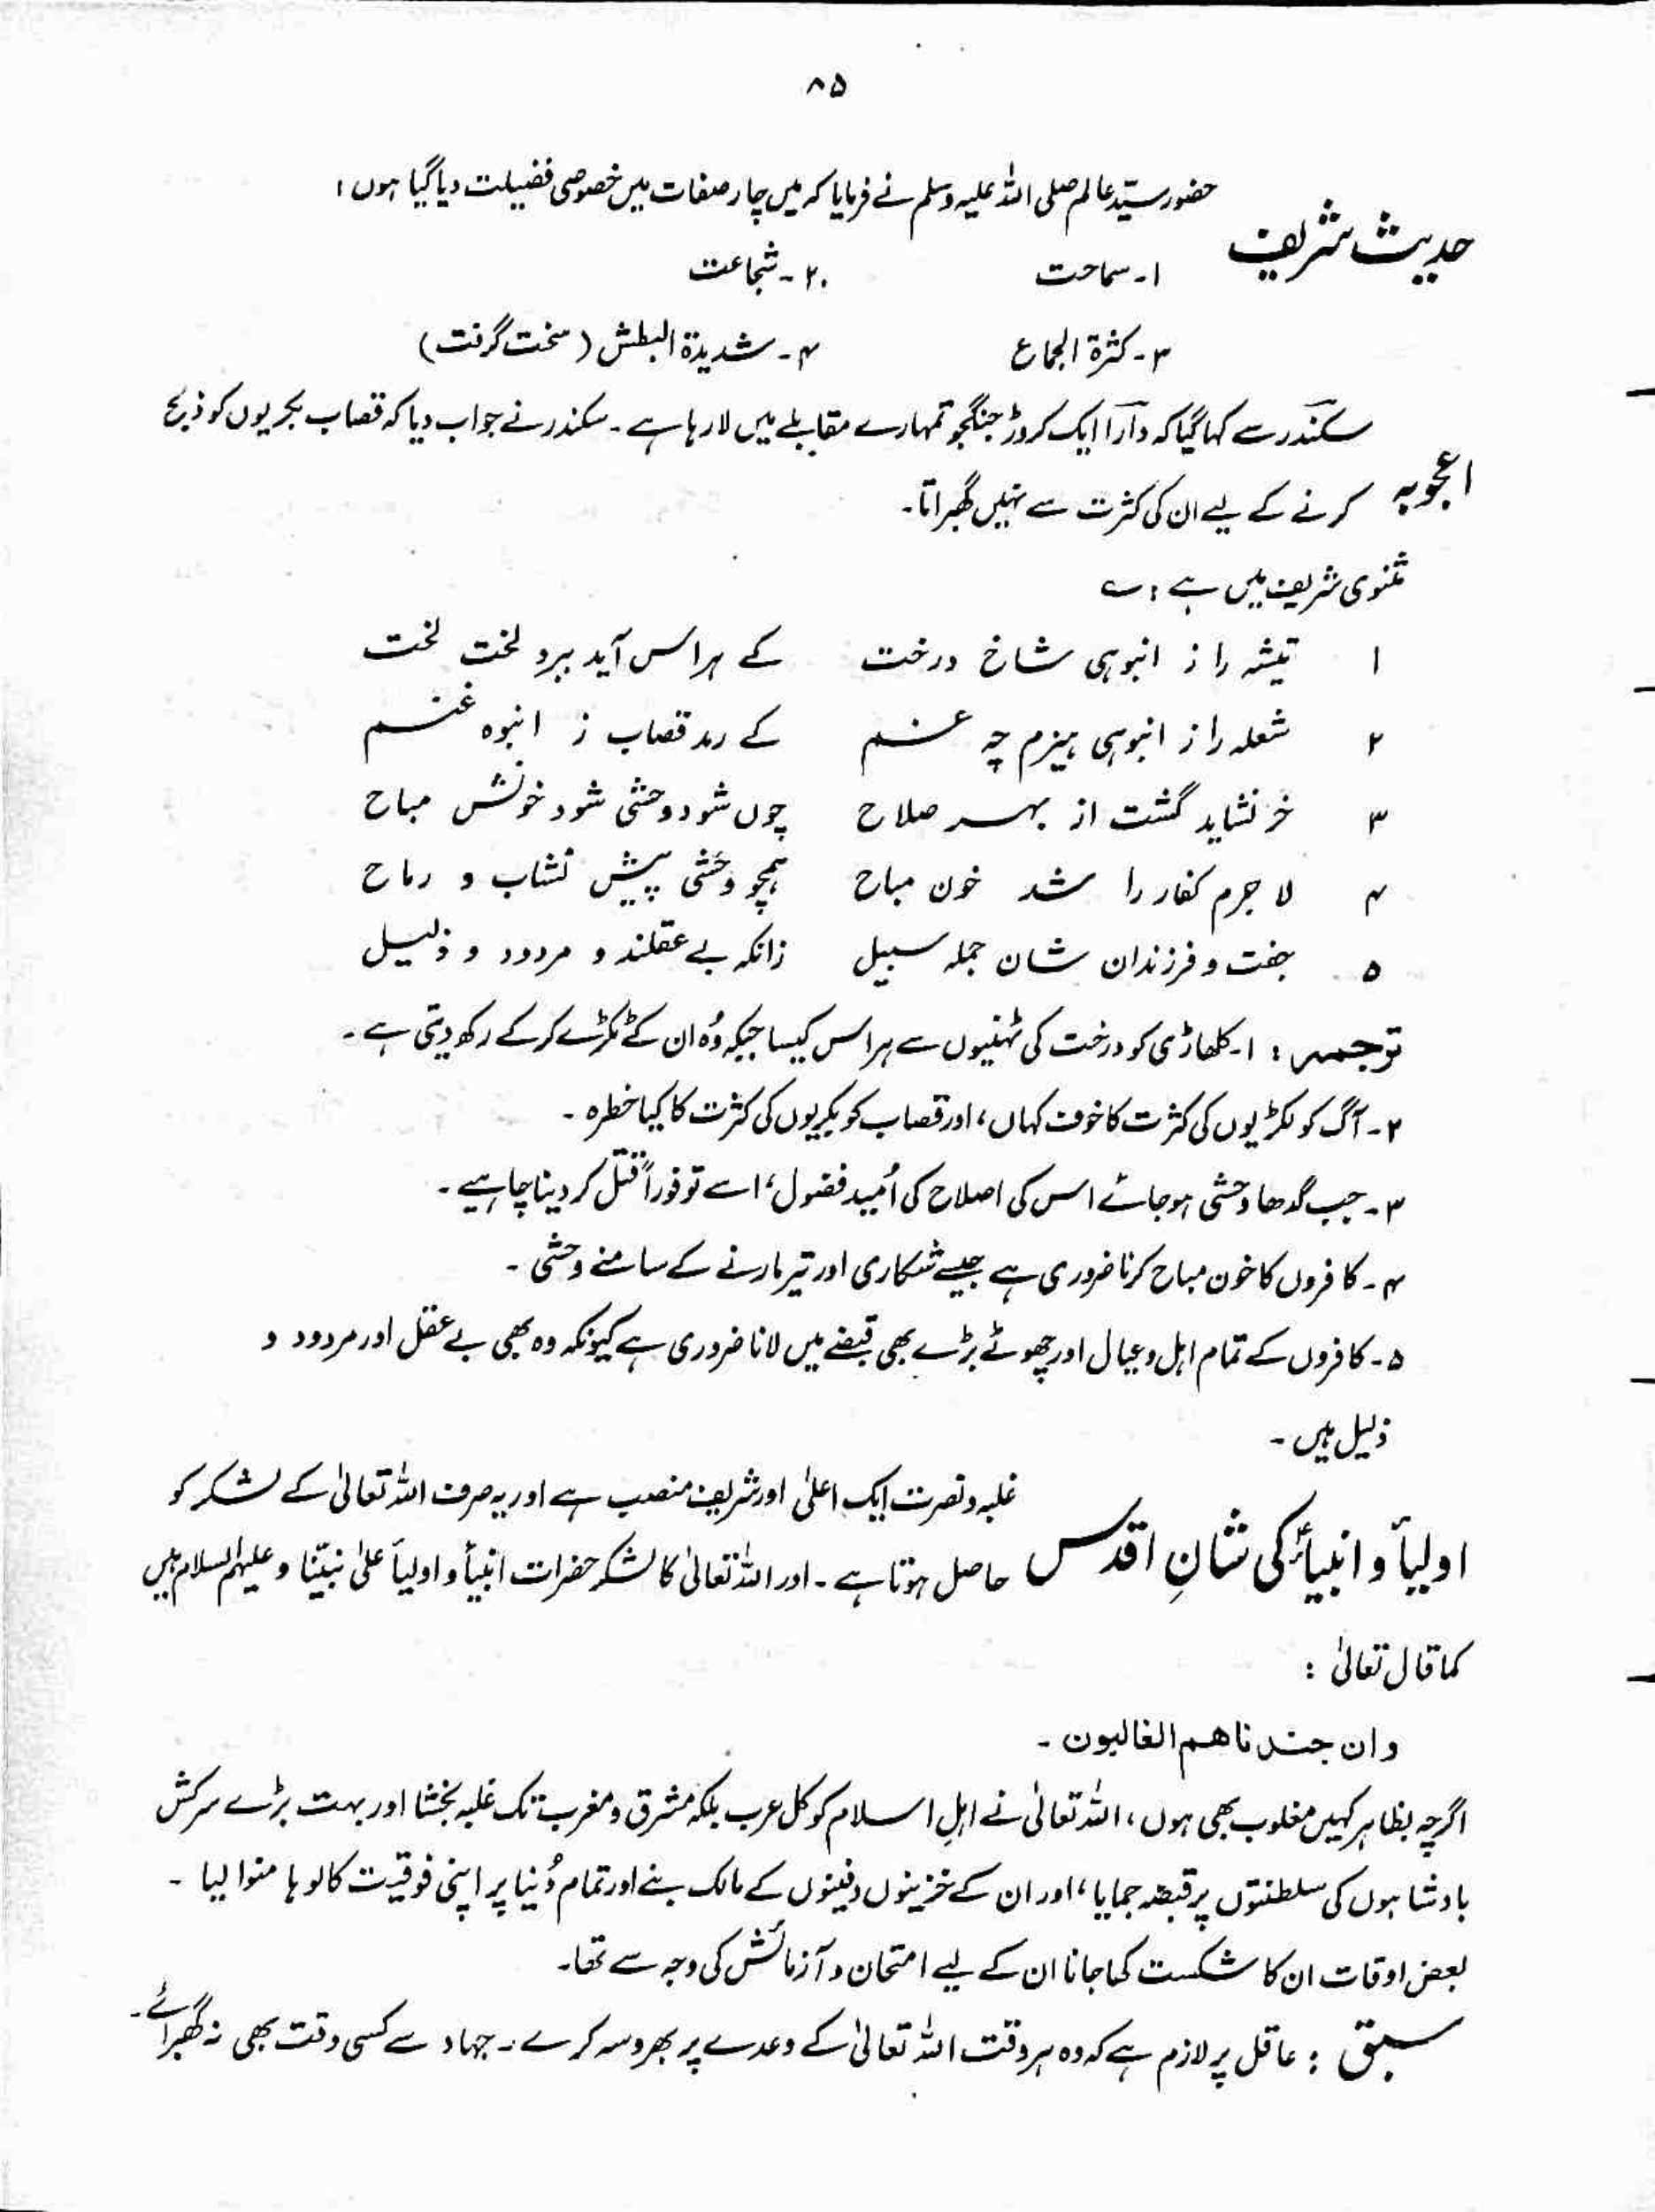 ۸۵
حضور سیّد عالم صلی اللہ علیہ وسلم نے فرمایا کہ میں چار صفات میں خصوصی فضیلت دیا گیا ہوں :
حدیث شریف
۱- سماحت ۲- شجاعت
۳- کثرۃ الجماع ۴- شدیدۃ البطش (سخت گرفت)
سکندر سے کہا گیا کہ دارا ایک کروڑ جنگجو تمہارے مقابلے میں لا رہا ہے ۔ سکندر نے جواب دیا کہ قصاب بکریوں کو ذبح
اعجوبہ کرنے کے لیے ان کی کثرت سے نہیں گھبراتا۔
مثنوی شریف میں ہے : ؎
۱ تیشہ را ز انبوہی شاخ درخت کے ہراس آید برد لخت لخت
۲ شعلہ را ز انبوہی ہیزم چہ غم کے رمد قصاب ز انبوہ غنم
۳ خر نشاید گشت از بہر صلاح چوں شود وحشی شود خونش مباح
۴ لا جرم کفار را شد خون مباح ہمچو وحشی پیش نشاب و رماح
۵ جفت و فرزندان شان جملہ سبیل زانکہ بے عقلند و مردود و ذلیل
ترجمہ : ۱- کلھاڑی کو درخت کی ٹہنیوں سے ہراس کیسا جبکہ وُہ ان کے ٹکڑے کرکے رکھ دیتی ہے ۔
۲- آگ کو لکڑیوں کی کثرت کا خوف کہاں، اور قصاب کو بکریوں کی کثرت کا کیا خطرہ ۔
۳- جب گدھا وحشی ہوجائے اس کی اصلاح کی اُمید فضول، اسے تو فوراً قتل کر دینا چاہیے ۔
۴- کافروں کا خون مباح کرنا ضروری ہے جیسے شکاری اور تیر مارنے کے سامنے وحشی ۔
۵- کافروں کے تمام اہل و عیال اور چھوٹے بڑے بھی قبضے میں لانا ضروری ہے کیونکہ وہ بھی بے عقل اور مردود و
ذلیل ہیں ۔
غلبہ و نصرت ایک اعلیٰ اور شریف منصب ہے اور یہ صرف اللہ تعالیٰ کے لشکر کو
اولیأ و انبیأ کی شانِ اقدس حاصل ہوتا ہے ۔ اور اللہ تعالیٰ کا لشکر حضرات انبیأ و اولیأ علیٰ نبیّنا و علیہم السلام ہیں
کما قال تعالیٰ :
وان جندنا ھم الغالبون ۔
اگرچہ بظاہر کہیں مغلوب بھی ہوں، اللہ تعالیٰ نے اہلِ اسلام کو کل عرب بلکہ مشرق و مغرب تک غلبہ بخشا اور بہت بڑے سرکش
بادشاہوں کی سلطنتوں پر قبضہ جمایا، اور ان کے خزینوں دفینوں کے مالک بنے اور تمام دُنیا پر اپنی فوقیت کا لوہا منوا لیا ۔
بعض اوقات ان کا شکست کھا جانا ان کے لیے امتحان و آزمائش کی وجہ سے تھا۔
سبق : عاقل پر لازم ہے کہ وہ ہر وقت اللہ تعالیٰ کے وعدے پر بھروسہ کرے ۔ جہاد سے کسی وقت بھی نہ گھبرائے ۔